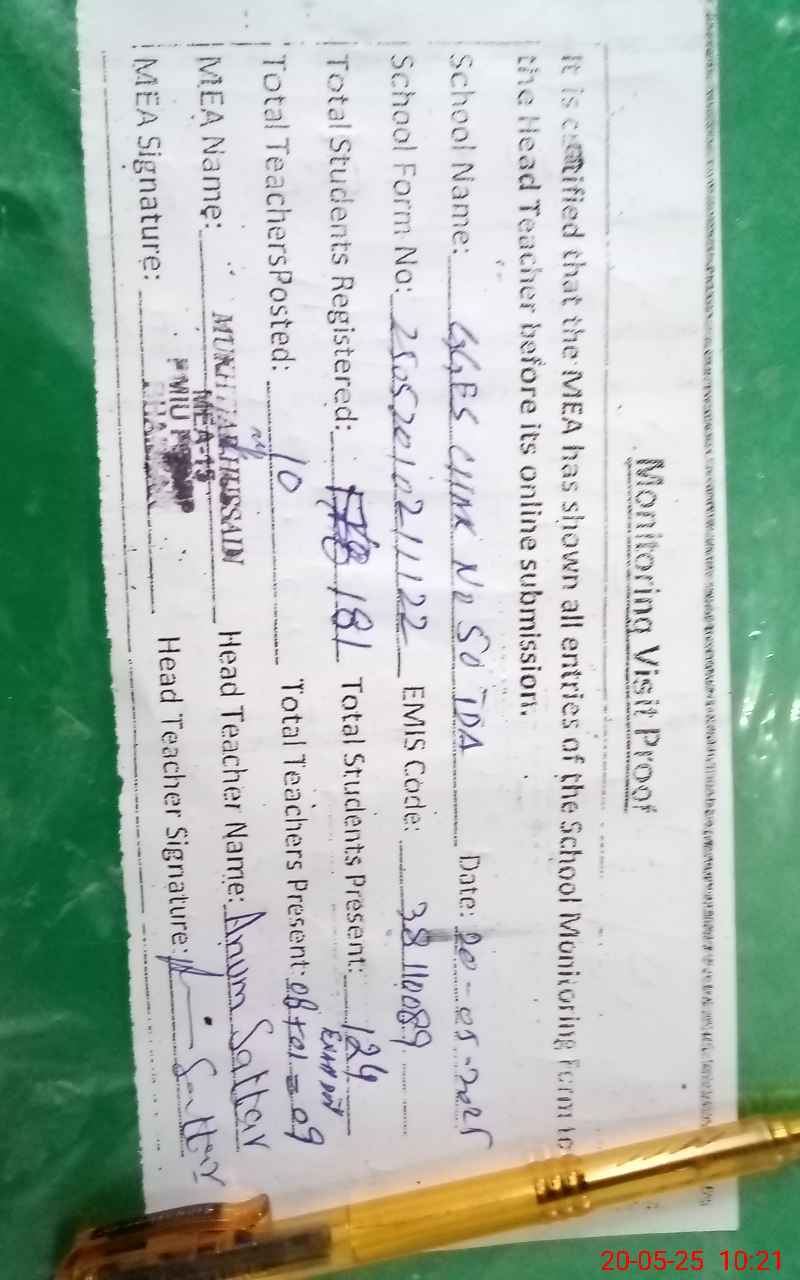 Monitoring Visit Proof
It is certified that the MEA has shown all entries of the School Monitoring Form to
the Head Teacher before its online submission.
School Name: GGES CHAK NO 50 TDA Date: 20-05-2025
School Form No: 25052010211122 EMIS Code: 38110089
Total Students Registered: 181 Total Students Present: 124
Total Teachers Posted: 10 Total Teachers Present: 08+01=09
MEA Name: MUKHTAR HUSSAIN Head Teacher Name: Anum Sattar
MEA-15
MEA Signature: Head Teacher Signature: Sattar
20-05-25 10:21